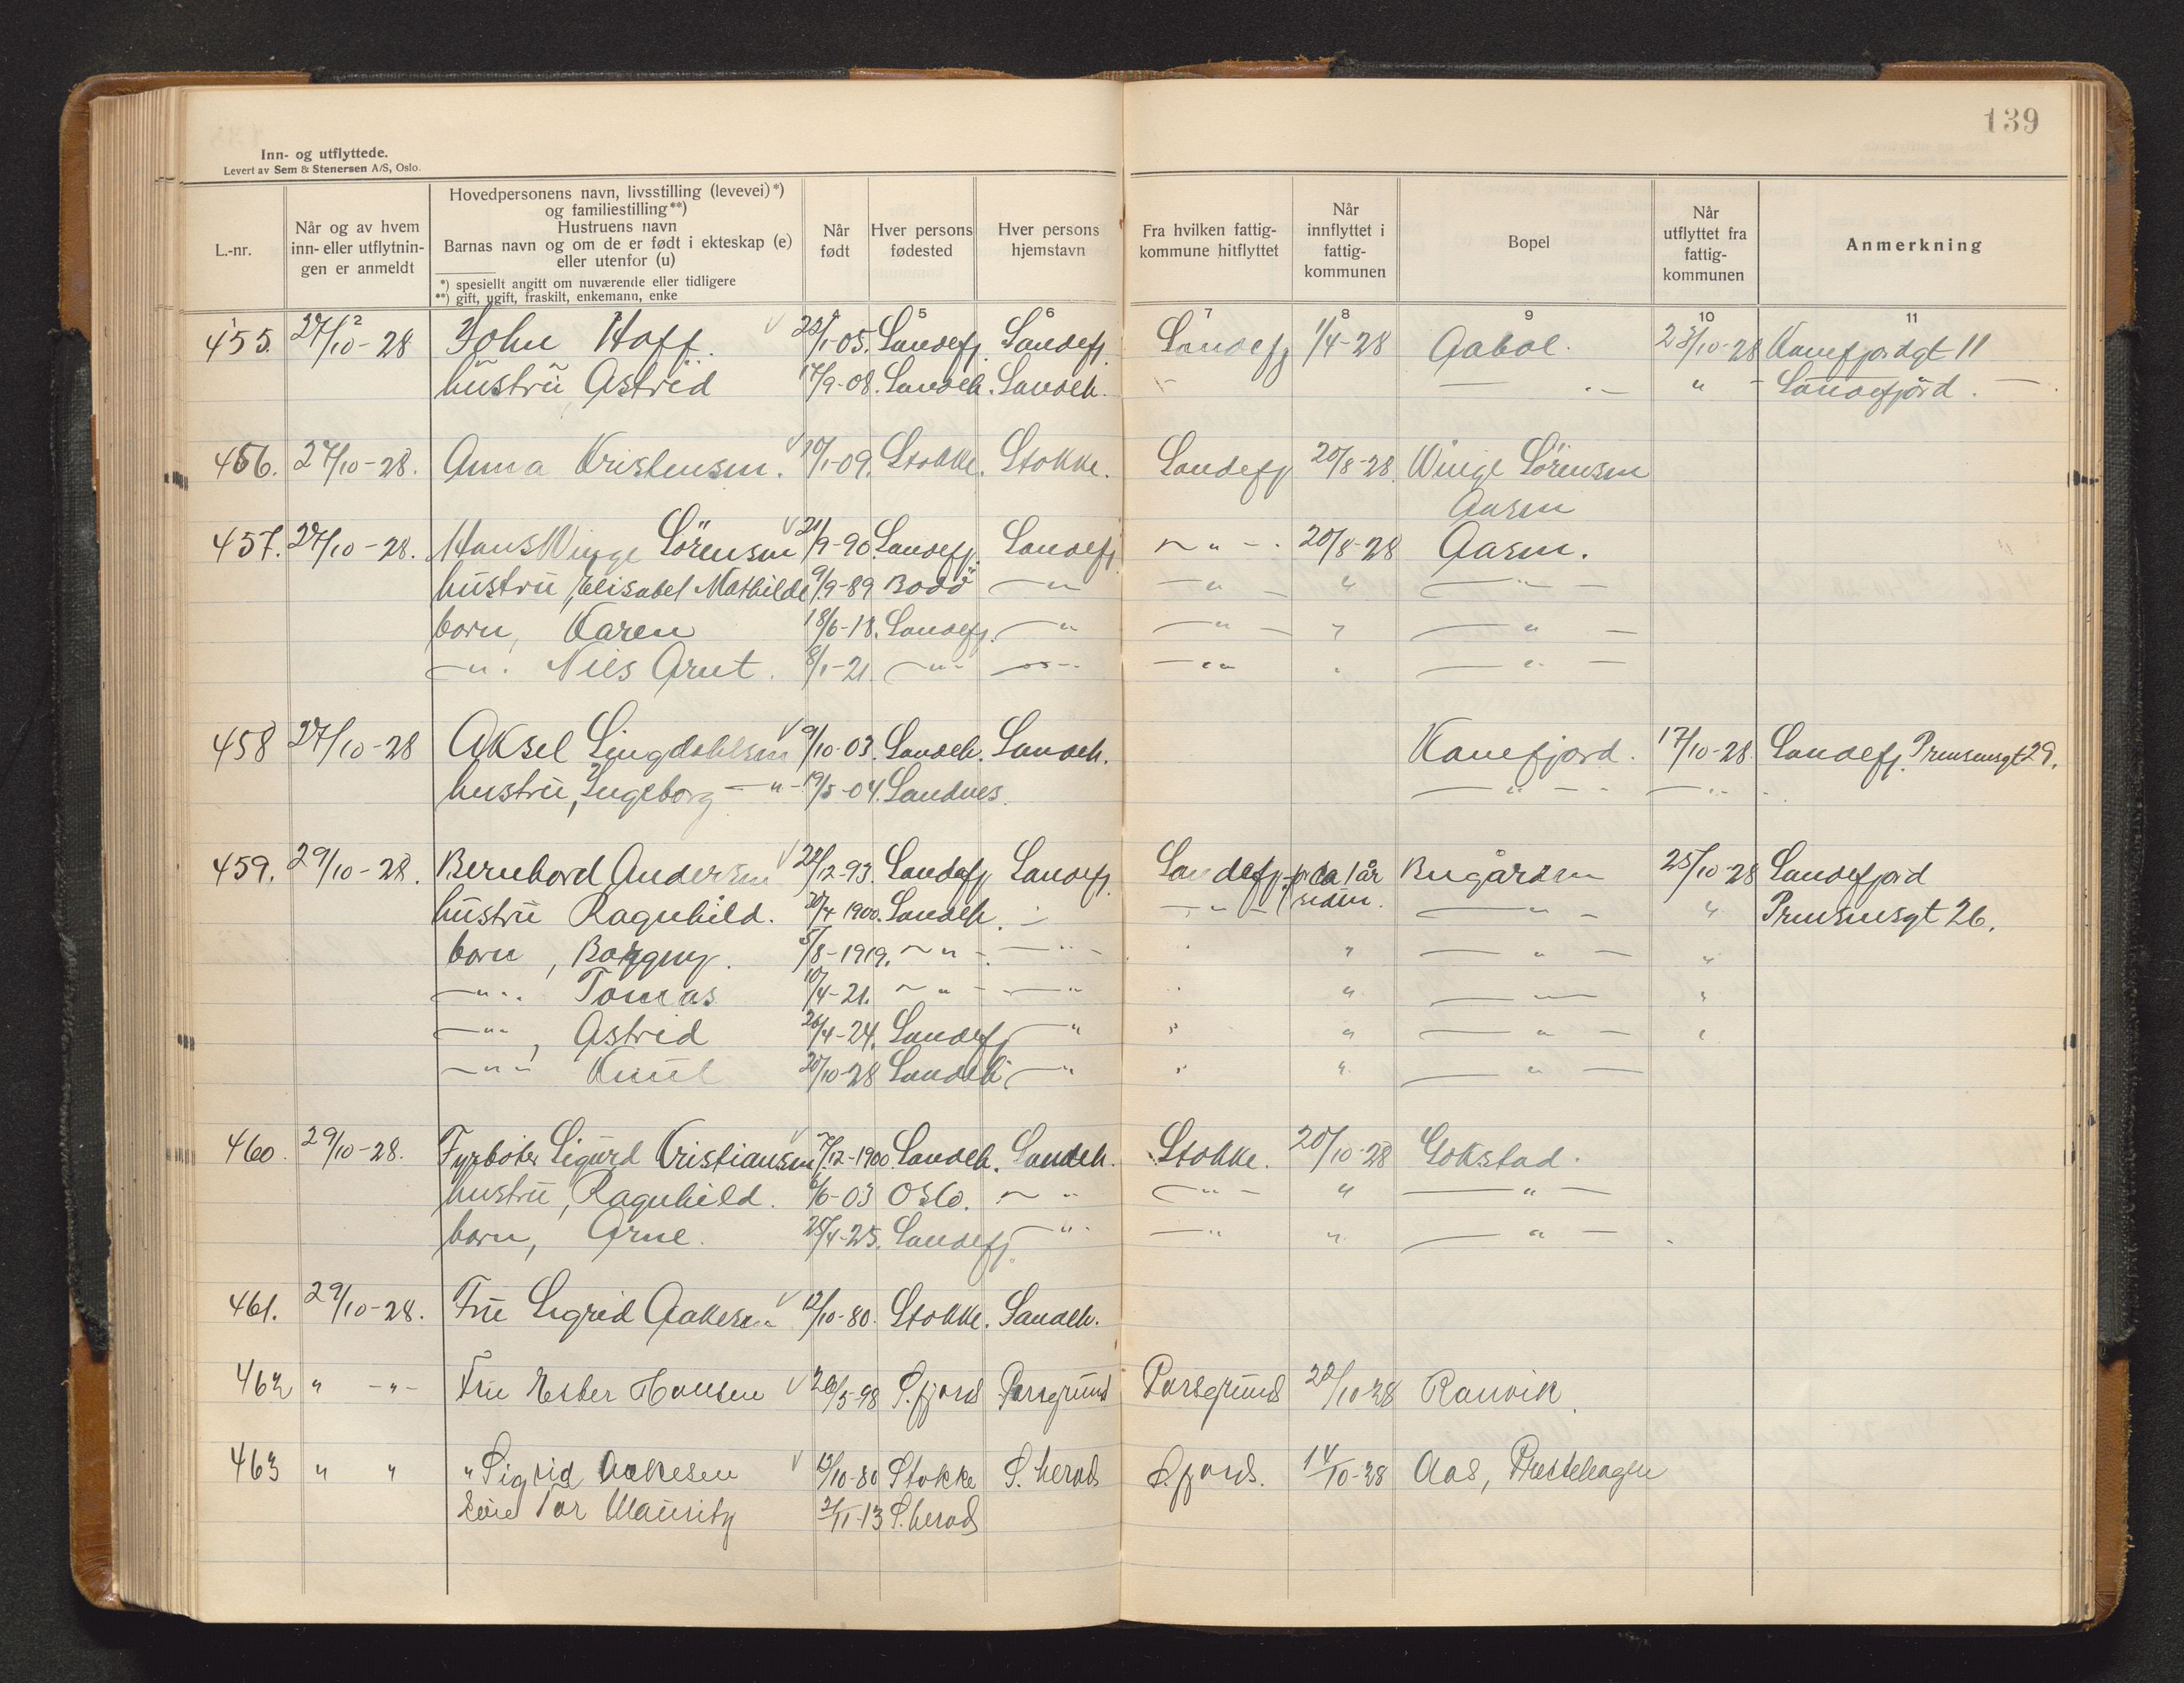 139
Inn- og utflyttede.
Levert av Sem & Stenersen A/S, Oslo.
L.-nr.
Når og av hvem inn- eller utflytnin- gen er anmeldt
Hovedpersonens navn, livsstilling (levevei)*) og familiestilling**) Hustruens navn Barnas navn og om de er født i ekteskap (e) eller utenfor (u)
*) spesiellt angitt om nuværende eller tidligere
**) gift, ugift, fraskilt, enkemann, enke
Når født
Hver persons fødested
Hver persons hjemstavn
Fra hvilken fattig- kommune hitflyttet
Når innflyttet i fattig- kommunen
Bopel
Når utflyttet fra fattig- kommunen
Anmerkning
1 2 5 6 7 8 9 10 11
455. 27/10-28 John Hoff. 22/1-05. Sandefj. Sandefj. Sandefj 1/4-28 Aabol. 23/10-28 Kamfjordgt 11
hustru Astrid 17/9-08. Sandeh. Sandeh. - — . — " - Sandefjord.
456. 27/10-28. Anna Kristensen. 10/1-09. Stokke. Stokke. Sandefj 20/8-28. Winge Sörensen
Aasen
457. 27/10-28. Hans Winge Sörensen 21/9-90. Sandefj. Sandefj — " - 20/8-28 Aasen.
hustru, Elisabet Mathilde 9/9-89 Bodö — " — " — " — " —
born, Karen 18/6-18. Sandefj. — " — " — " — " —
— " . Nils Arnt. 8/1-21. — " - — " - — " " — " —
458 27/10-28 Aksel Lingdahlsen 9/10-03. Sandeh. Sandeh. Kamfjord. 17/10-28. Sandefj. Prinsensgt 29.
hustru, Ingeborg — " - 19/5-04. Sandnes. — " — — " -
459. 29/10-28. Bernhard Andersen 22/12-93. Sandefj Sandefj. Sandefj. for ca 1 år Bugården 25/10-28 Sandefjord
hustru Ragnhild. 30/4-1900. Sandeh. " — " — siden. — " — " Prinsensgt 26.
born, Borgny. 5/8-1919. — " - — " - " " — " — "
— " . Tomas 10/4-21. — " - — " " " — " — "
— " , Astrid 26/4-24. Sandefj — " " " — " — "
— " — Knut 20/10-28 Sandeh — " " " — " —
460. 29/10-28. Fyrböter Sigurd Kristiansen 7/12-1900. Sandeh. Sandeh. Stokke. 20/10-28 Gokstad.
hustru, Ragnhild. 6/6-03 Oslo. — " — " - " — " —
born, Arne. 25/4-25. Sandefj. — " - — " " — " —
461. 29/10-28. Fru Sigrid Aakesen 12/10-80. Stokke. Sandeh.
462 " — " - Fru Ester Hansen 26/5-98 S.fjord Porsgrund Porsgrund 22/10-28 Ranvik.
463 " " " Sigrid Aakesen 12/10-80 Stokke S. herad S.fjord. 14/10-28 Aas, Prestehagen
Tor Mauritz 2/11-13 S.herad